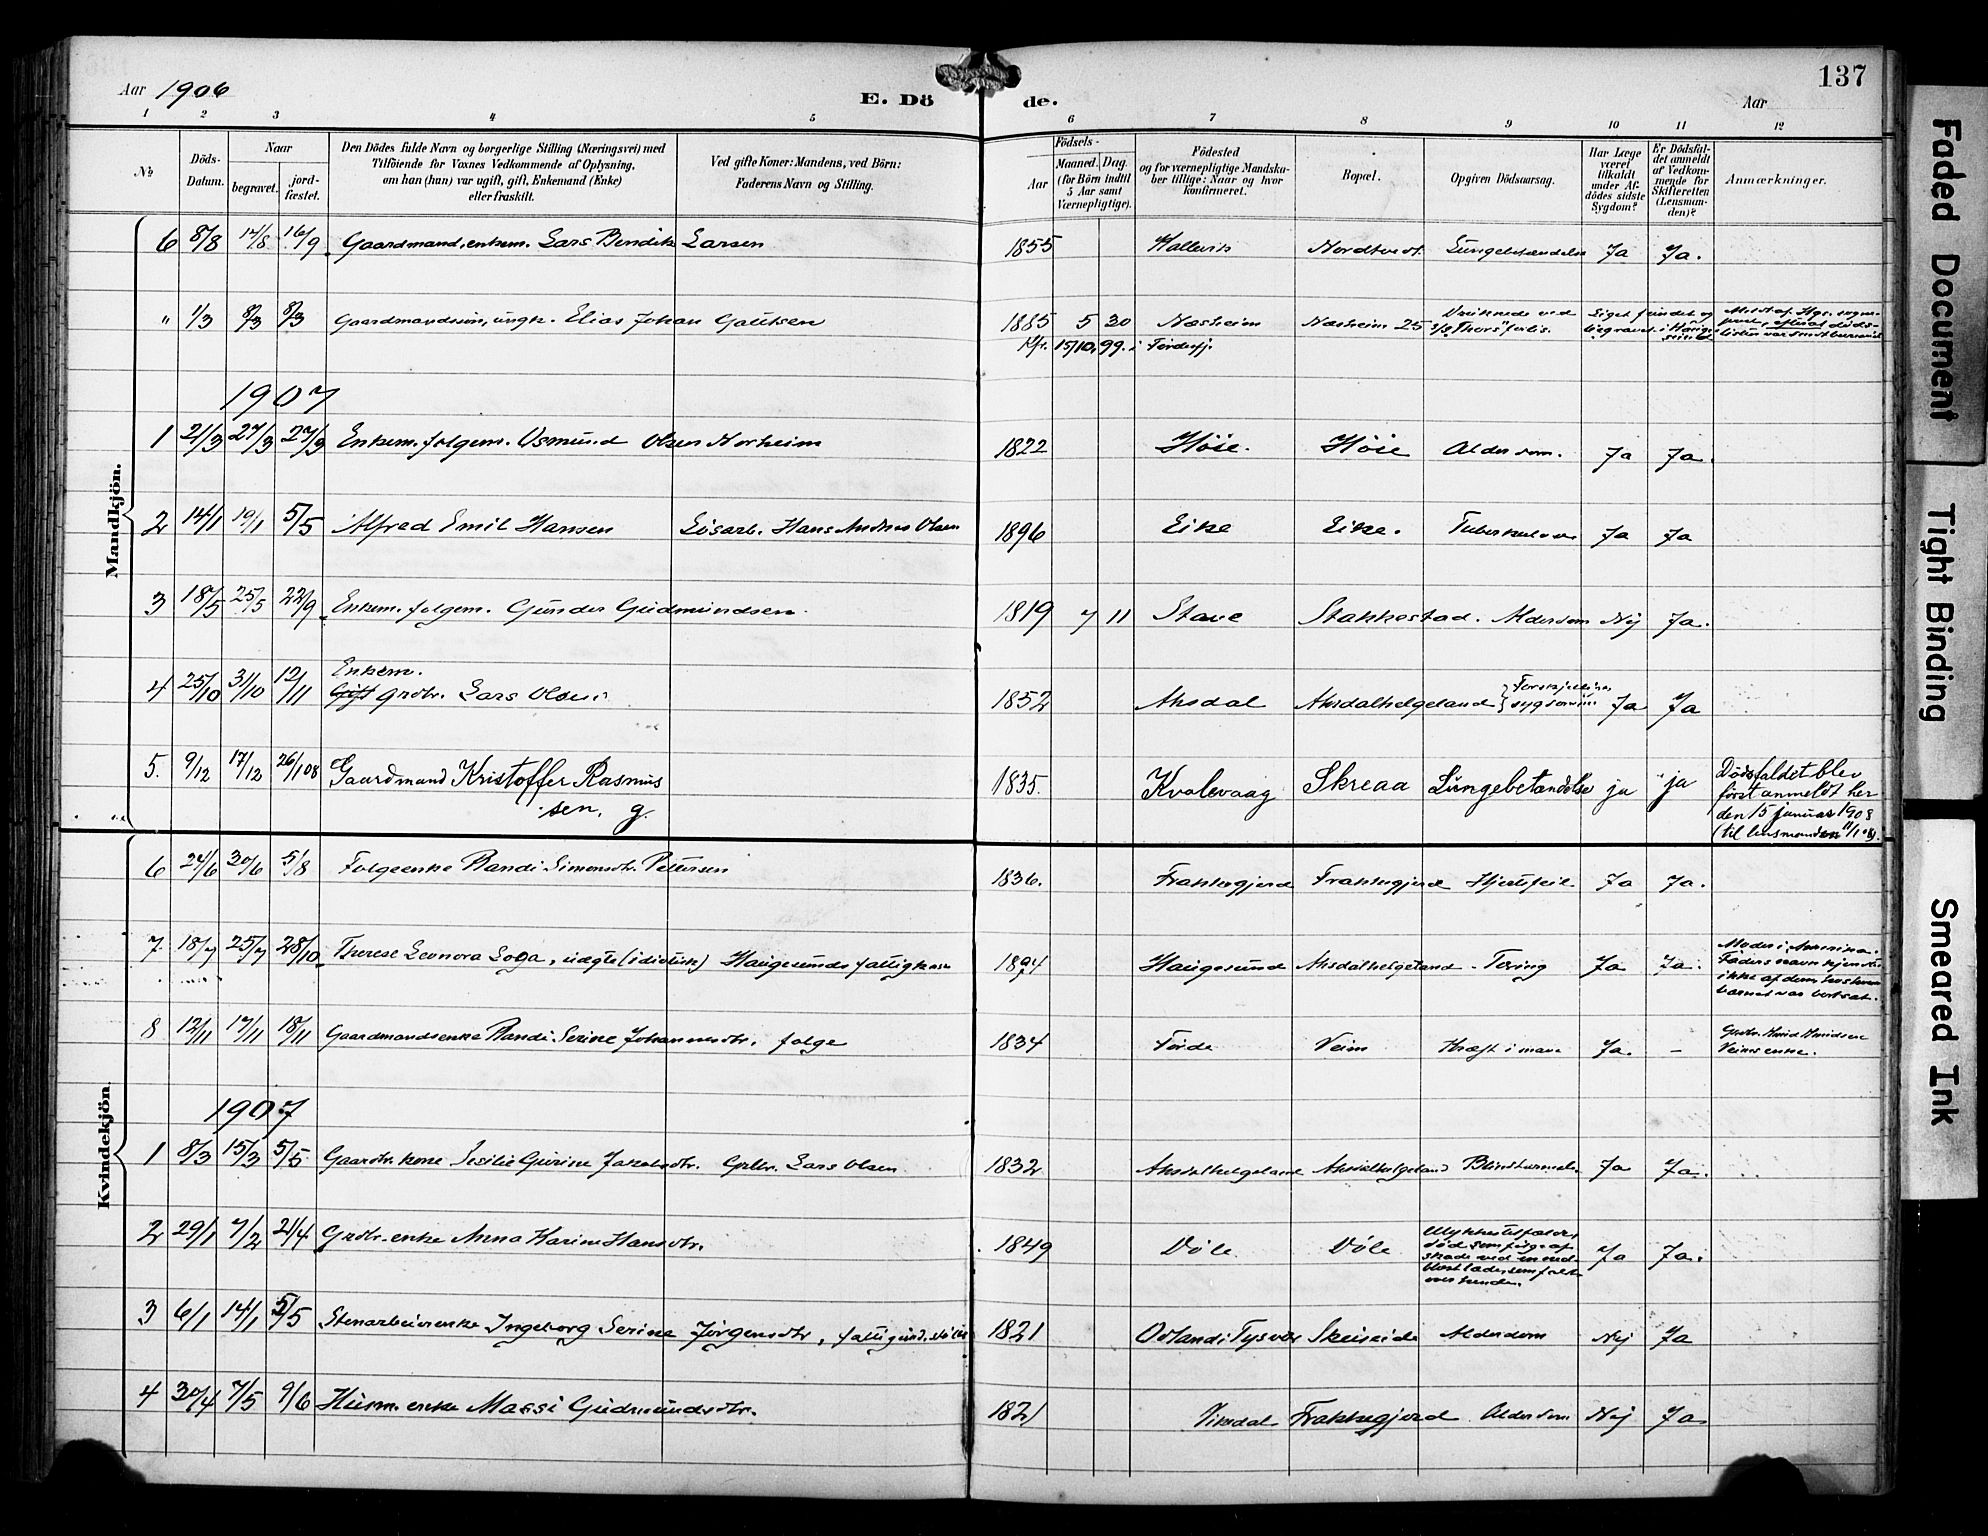 Aar 1906
E. Dö
de.
Aar
137
1 2 3 4 5 6 7 8 9 10 11 12
№
Döds-Datum.
Naar
begravet.
jord-fæstet.
Den Dödes fulde Navn og borgerlige Stilling (Næringsvei) med
Tilföiende for Voxnes Vedkommende af Oplysning,
om han (hun) var ugift, gift, Enkemand (Enke)
eller fraskilt.
Ved gifte Koner: Mandens, ved Börn:
Faderens Navn og Stilling.
Födsels-
Aar
Maaned. Dag.
(for Börn indtil
5 Aar samt
Værnepligtige).
Födested
og for værnepligtige Mandska-
ber tillige: Naar og hvor
konfirmeret.
Bopæl.
Opgiven Dödsaarsag.
Har Læge
været
tilkaldt
under Af-
dödes sidste
Sygdom?
Er Dödsfal-
det anmeldt
af Vedkom-
mende for
Skifteretten
(Lensman-
den)?
Anmærkninger.
Mandkjön.
6 8/8 14/8 16/9 Gaardmand, enkem. Lars Bendik Larsen 1855 Hallevik Nordtvedt. Lungebetændelse Ja Ja.
" 1/3 8/3 8/3 Gaardmandssön, ungk. Elias Johan Gautsen 1885 5 30 Næsheim Næsheim 25 Druknede ved
Kfr. 15/10 99. i Førdesfj.
1907
1 21/3 27/3 27/3 Enkem. folgem. Osmund Olsen Norheim 1822 Høie. Høie Alderdom. Ja Ja.
2 14/1 19/1 5/5 Alfred Emil Hansen Løsarb. Hans Andreas Olsen 1896 Eike Eike. Tuberkulose Ja Ja
3 18/5 25/5 22/9 Enkem. folgem. Gunder Gudmundsen. 1819 7 11 Stave Stakkestad. Alderdom Nej Ja.
4 25/10 31/10 12/11 Enkem.
Gift grdbr. Lars Olsen 1852 Aksdal Aksdalhelgeland Forskjellige sygdomme Ja Ja
5. 9/12 17/12 26/1 08 Gaardmand Kristoffer Rasmus
sen. g. 1835. Kvalevaag Skreaa Lungebetændelse ja ja Dödsfaldet blev
först anmeldt her
den 15 januar 1908
(til lensmanden 11/1 08).
Kvindekjön.
6 24/6 30/6 5/8 Folgeenke Randi Simonsdtr. Pettersen 1836. Frakkagjerd Frakkagjerd Hjertefeil Ja Ja.
7. 18/7 25/7 28/10 Therese Leonora Loga, uægte (idiotisk) Haugesunds fattigkasse 1894 Haugesund Aksdalhelgeland Tæring Ja Ja. Moder i Amerika.
Faders navn kjendtes
ikke af dem hos hvem
barnet var bortsat.
8 12/11 17/11 18/11 Gaardmandsenke Randi Serine Johannesdtr. folge 1834 Førde Veim Kræft i mave Ja. –
Veims enke.
1907
1 8/3 15/3 5/5 Gaardbr. kone Sesilie Gurine Jakobsdtr. Grbr. Lars Olsen 1832 Aksdalhelgeland Aksdalhelgeland Ja Ja.
2 29/1 7/2 21/4 Grdbr. enke Anna Karine Hansdtr. 1849 Døle Døle Ulykkestilfælde,
død som følge af
skade ved en ned-
blæst lade, som faldt
over hende. Ja Ja.
3 6/1 14/1 5/5 Stenarbeierenke Ingeborg Serine Jørgensdtr, 1821 Odland i Tysvær Skeiseide Alderdom Nej Ja
4 30/4 7/5 9/6 Husm. enke Massi Gudmundsdtr. 1821 Viksdal Frakkagjerd Alderdom Nej Ja
Faded Document
Tight Binding
Smeared Ink